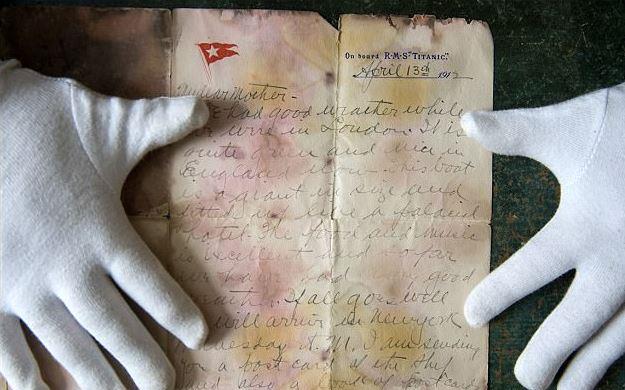 On board R.M.S. "TITANIC."
April 13th 1912
My dear Mother -
had good weather while
we were in London. It is
quite green and nice in
England now. This boat
is a giant in size and
fitted up like a palacial
hotel. The food and music
is excellent and so far
we have had very good
weather. If all goes well
will arrive in New York
Wednesday A.M. I am sending
you a post card of the ship
and also a book of postcards